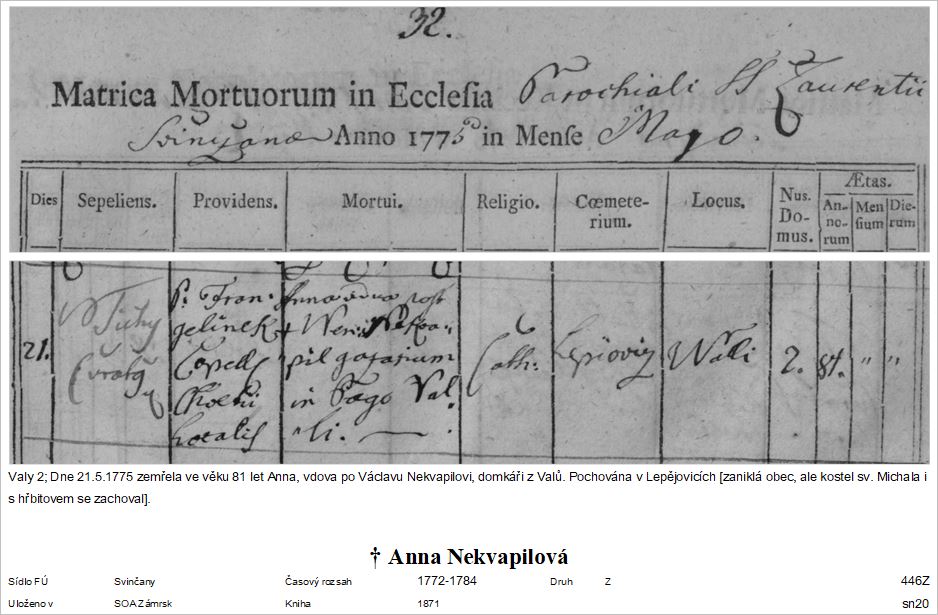 32.
Matrica Mortuorum in Ecclesia Parochiali SS Laurentii
Svinczanae Anno 1775 in Mense Mayo.
Dies Sepeliens. Providens. Mortui. Religio. Cœmete-rium. Locus. Nus. Do-mus. Ætas. An-no-rum Men sium Die-rum
21.
Tichy
P. Fran
Gelinek
Capell
Choeti
hocalis
Anna vidua post
+ Wen: Nekva-
pil gazarium
in Pago Val-
li.
Cath:
Walli
2.
81.
"
"
Valy 2; Dne 21.5.1775 zemřela ve věku 81 let Anna, vdova po Václavu Nekvapilovi, domkáři z Valů. Pochována v Lepějovicích [zaniklá obec, ale kostel sv. Michala i
s hřbitovem se zachoval].
† Anna Nekvapilová
Sídlo FÚ Svinčany Časový rozsah 1772-1784 Druh Z 446Z
Uloženo v SOA Zámrsk Kniha 1871 sn20